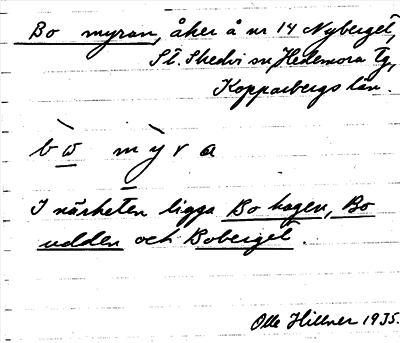 Bo myran, åker å nr 14 Nyberget,
St. Skedvi sn, Hedemora tg,
Kopparbergs län.
bὼ mỳra
I närheten ligga Bo hagen, Bo
udden och Boberget.
Olle Hillner 1935.